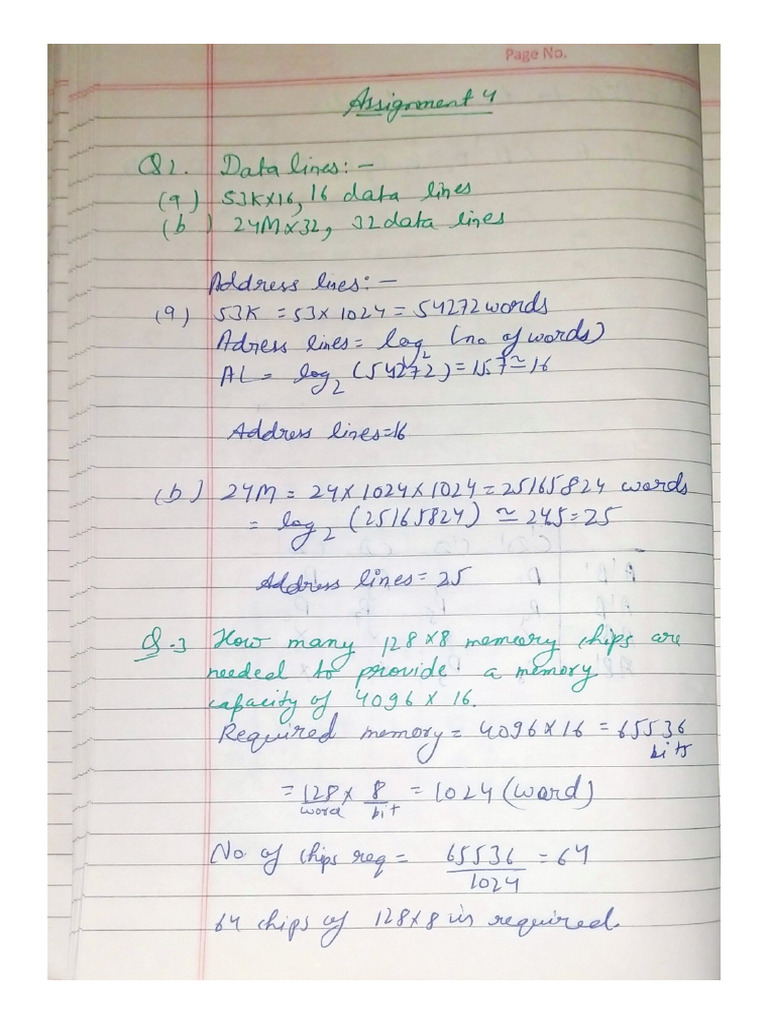 Page No.
Assignment 4
Q2. Data lines:-
(a) 53K×16, 16 data lines
(b) 24M×32, 32 data lines
Address lines:-
(a) 53K = 53×1024 = 54272 words
Adress lines = log₂ (no of words)
AL = log₂ (54272) = 15.7 ≃ 16
Address lines=16
(b) 24M = 24×1024×1024 = 25165824 words
= log₂ (25165824) ≃ 24.5 = 25
Address lines = 25
Q.3 How many 128×8 memory chips are
needed to provide a memory
capacity of 4096 × 16.
Required memory = 4096×16 = 65536
bits
= 128 × 8 = 1024 (word)
word bit
No of chips req = 65536 = 64
1024
64 chips of 128×8 is required.